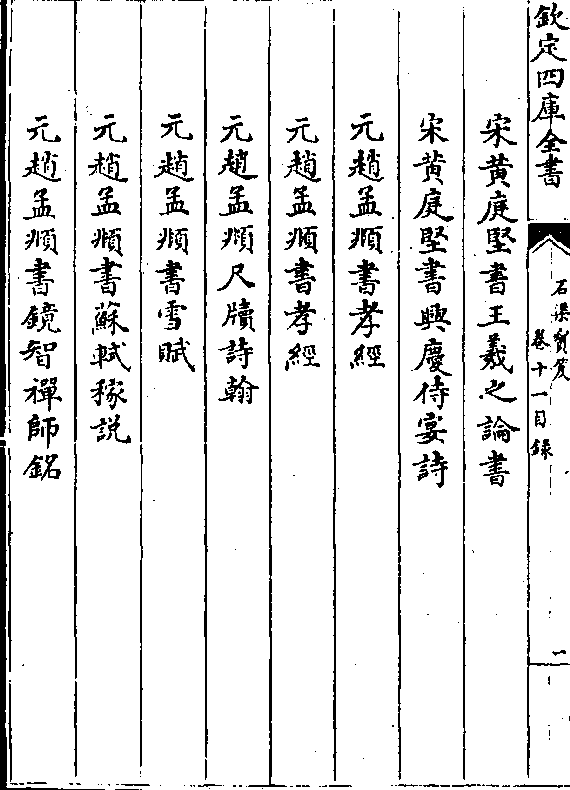 欽定四庫全書
石渠寳笈
卷十一目録
二
宋黄庭堅書王羲之論書
宋黄庭堅書興慶侍宴詩
元趙孟頫書孝經
元趙孟頫書孝經
元趙孟頫尺牘詩翰
元趙孟頫書雪賦
元趙孟頫書蘇軾稼説
元趙孟頫書鏡智禪師銘